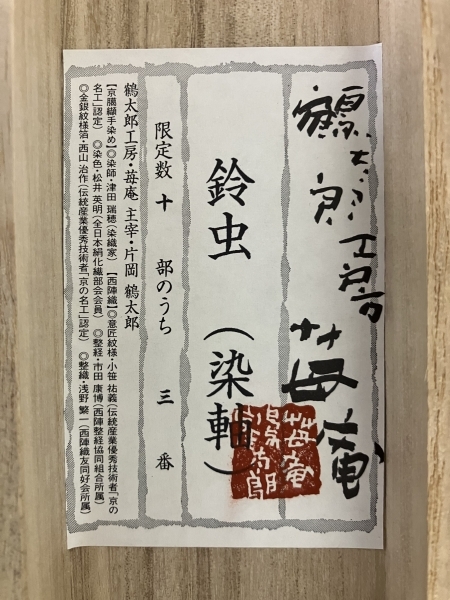 鶴太郎工房
苺庵
鈴虫（染軸）
限定数 十 部のうち 三 番
鶴太郎工房・苺庵 主宰・片岡 鶴太郎
【京臈纈手染め】◎染師・津田 瑞穂（染織家） 【西陣織】◎意匠紋様・小笹 祐義（伝統産業優秀技術者「京の
名工」認定） ◎染色・松井 英明（全日本絹化繊部会会員） ◎整経・市田 康博（西陣整経協同組合所属）
◎金銀紋様箔・西山 治作（伝統産業優秀技術者「京の名工」認定） ◎整織・浅野 繁一（西陣織友同好会所属）
苺庵